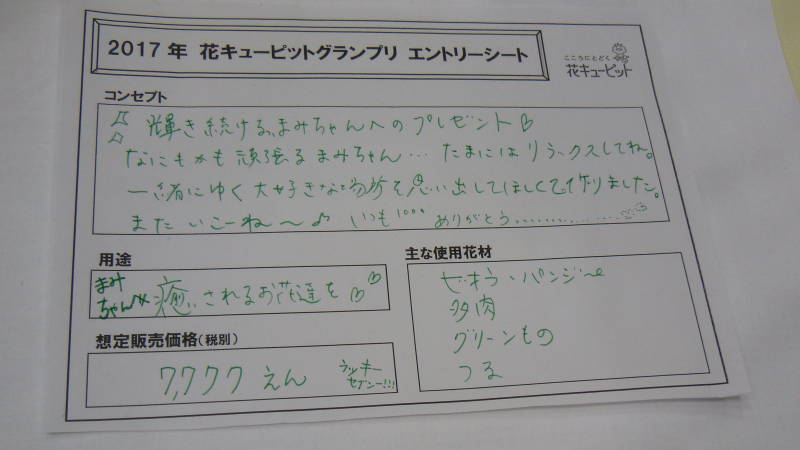 2017年 花キューピットグランプリ エントリーシート
こころにとどく
花キューピット
コンセプト
輝き続ける、まみちゃんへのプレゼント♡
なにもかも頑張るまみちゃん… たまにはリラックスしてね。
一緒にゆく大好きな場所を思い出してほしくて作りました。
またいこーね〜♪ いつも ありがとう
用途
まみちゃん 癒されるお花達を♡♡
想定販売価格(税別)
7,777えん
ラッキーセブンー!!!
主な使用花材
ビオラ・パンジー
多肉
グリーンもの
つる